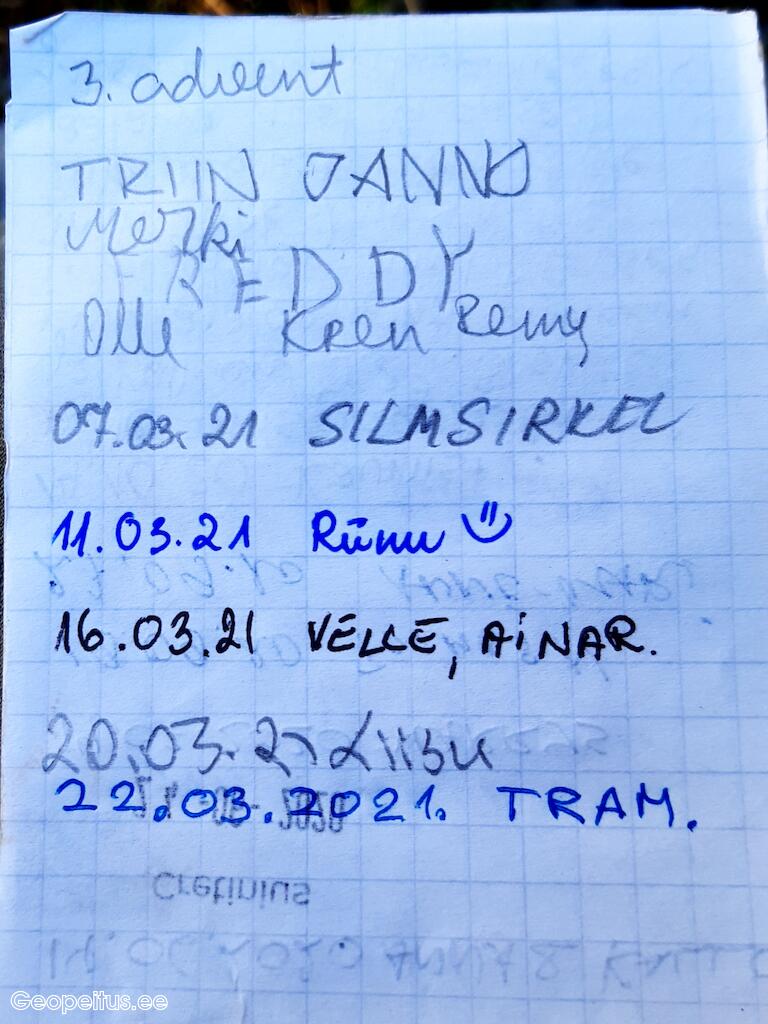 3. advent
TRIIN JANNO
Merki
FREDDY
Olle Kren Remy
07.03.21 SILMSIRKEL
11.03.21 Rünu
16.03.21 VELLE, AiNAR.
20.03.21 Liisu
22.03.2021. TRAM.
Cretinius
Geopeitus.ee